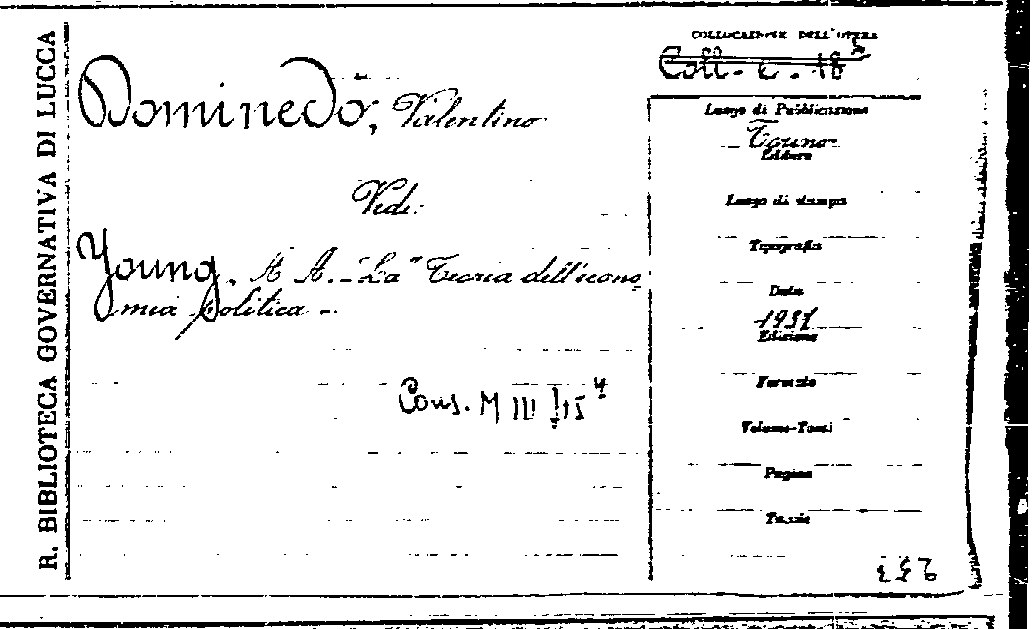 R. BIBLIOTECA GOVERNATIVA DI LUCCA
Dominedò, Valentino
Vedi:
Young. A A. - "La" Teoria dell'econo
mia politica -
Cons. M III
COLLOCAZIONE DELL'OPERA
Coll. C. 18
Luogo di Pubblicazione
Torino
Editore
Luogo di stampa
Tipografia
Data
1937
Edizione
Formato
Volume-Tomi
Pagine
Tavole